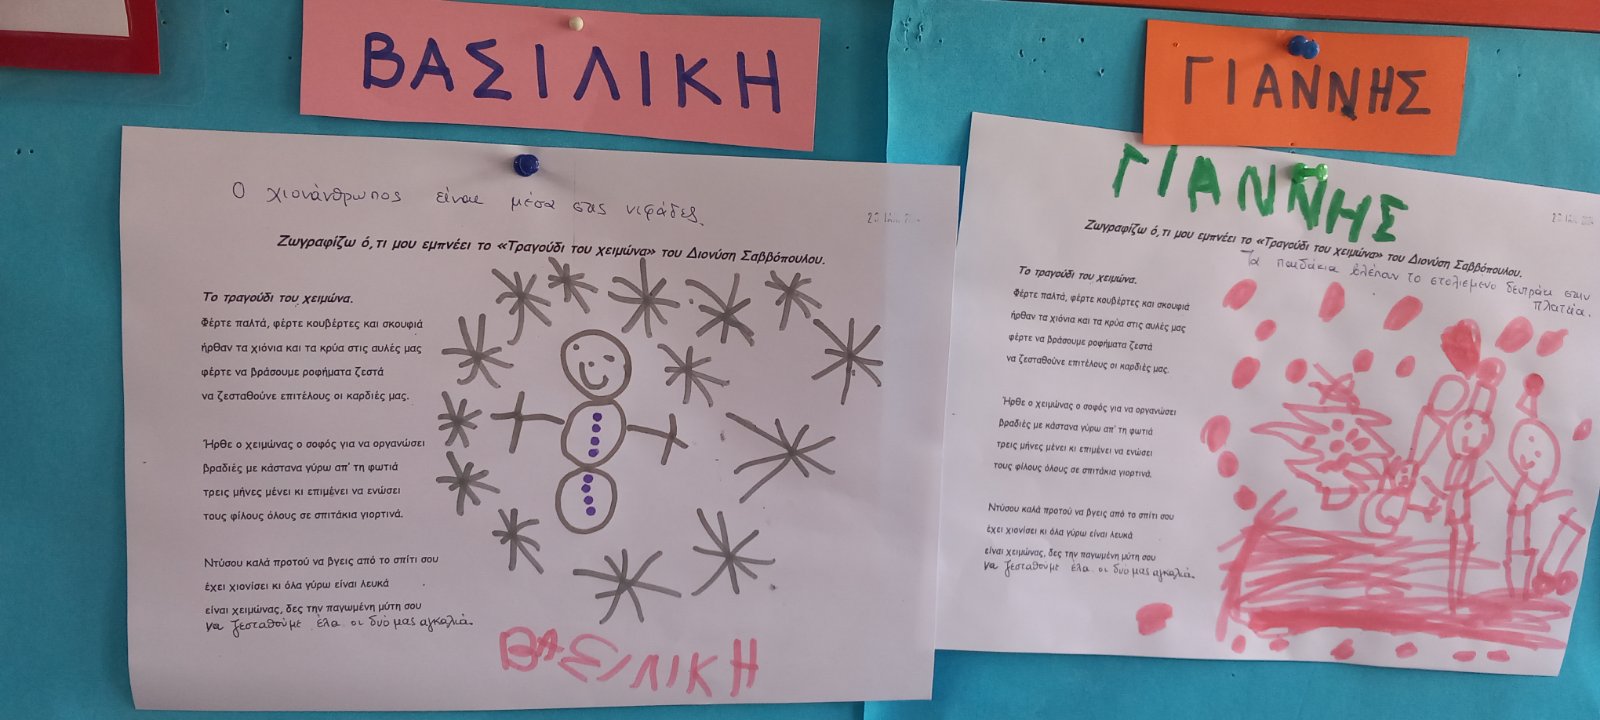 ΒΑΣΙΛΙΚΗ
Ο χιονάνθρωπος είναι μέσα στις νιφάδες.
Ζωγραφίζω ό,τι μου εμπνέει το «Τραγούδι του χειμώνα» του Διονύση Σαββόπουλου.
Το τραγούδι του χειμώνα.
Φέρτε παλτά, φέρτε κουβέρτες και σκουφιά
ήρθαν τα χιόνια και τα κρύα στις αυλές μας
φέρτε να βράσουμε ροφήματα ζεστά
να ζεσταθούνε επιτέλους οι καρδιές μας.
Ήρθε ο χειμώνας ο σοφός για να οργανώσει
βραδιές με κάστανα γύρω απ' τη φωτιά
τρεις μήνες μένει κι επιμένει να ενώσει
τους φίλους όλους σε σπιτάκια γιορτινά.
Ντύσου καλά προτού να βγεις από το σπίτι σου
έχει χιονίσει κι όλα γύρω είναι λευκά
είναι χειμώνας, δες την παγωμένη μύτη σου
να ζεσταθούμε έλα οι δυο μας αγκαλιά.
ΒΑΣΙΛΙΚΗ
ΓΙΑΝΝΗΣ
ΓΙΑΝΝΗΣ
Ζωγραφίζω ό,τι μου εμπνέει το «Τραγούδι του χειμώνα» του Διονύση Σαββόπουλου.
Τα παιδάκια βλέπουν το στολισμένο δεντράκι στην
πλατεία.
Το τραγούδι του χειμώνα.
Φέρτε παλτά, φέρτε κουβέρτες και σκουφιά
ήρθαν τα χιόνια και τα κρύα στις αυλές μας
φέρτε να βράσουμε ροφήματα ζεστά
να ζεσταθούνε επιτέλους οι καρδιές μας.
Ήρθε ο χειμώνας ο σοφός για να οργανώσει
βραδιές με κάστανα γύρω απ' τη φωτιά
τρεις μήνες μένει κι επιμένει να ενώσει
τους φίλους όλους σε σπιτάκια γιορτινά.
Ντύσου καλά προτού να βγεις από το σπίτι σου
έχει χιονίσει κι όλα γύρω είναι λευκά
είναι χειμώνας, δες την παγωμένη μύτη σου
να ζεσταθούμε έλα οι δυο μας αγκαλιά.